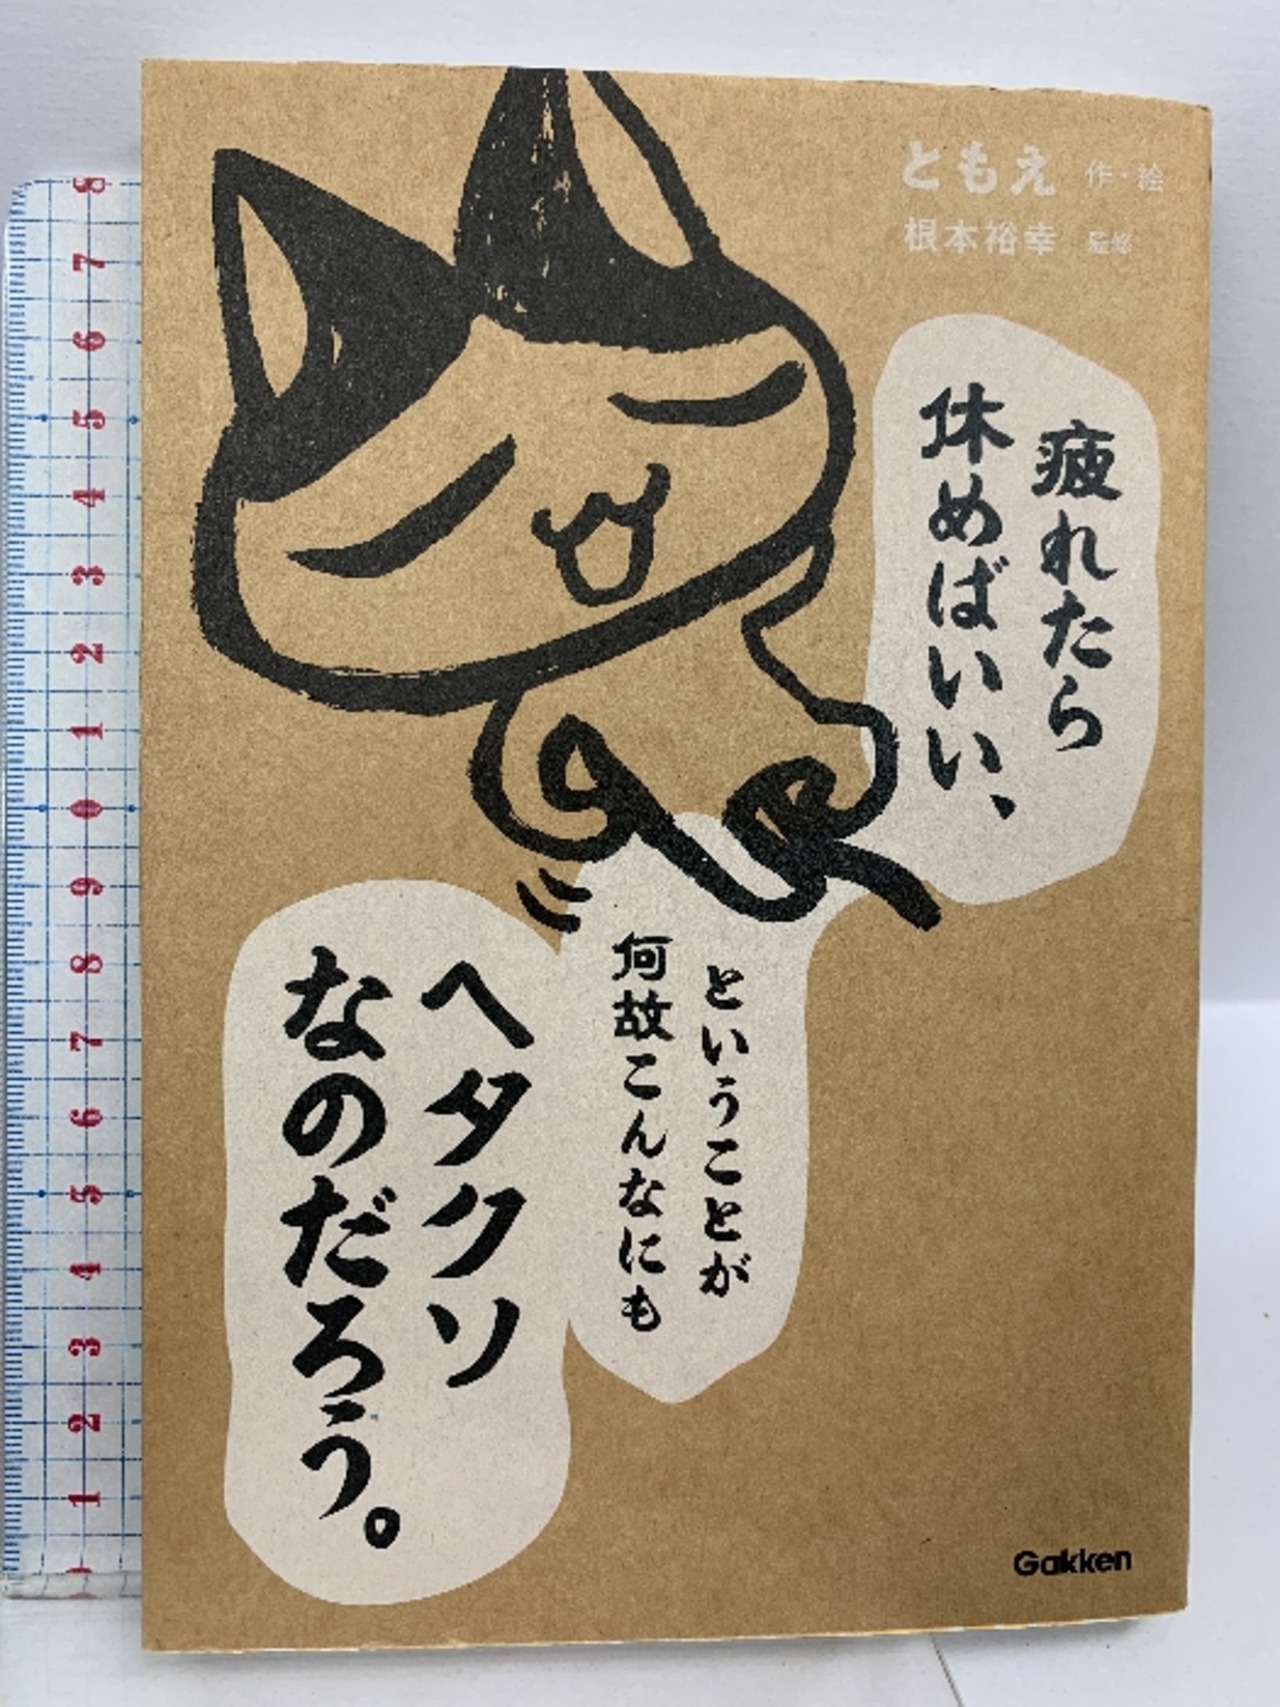 ともえ 作・絵
根本裕幸 監修
疲れたら
休めばいい、
ということが
何故こんなにも
ヘタクソ
なのだろう。
Gakken
8
7
6
5
4
3
2
1
0
9
8
7
6
5
4
3
2
1